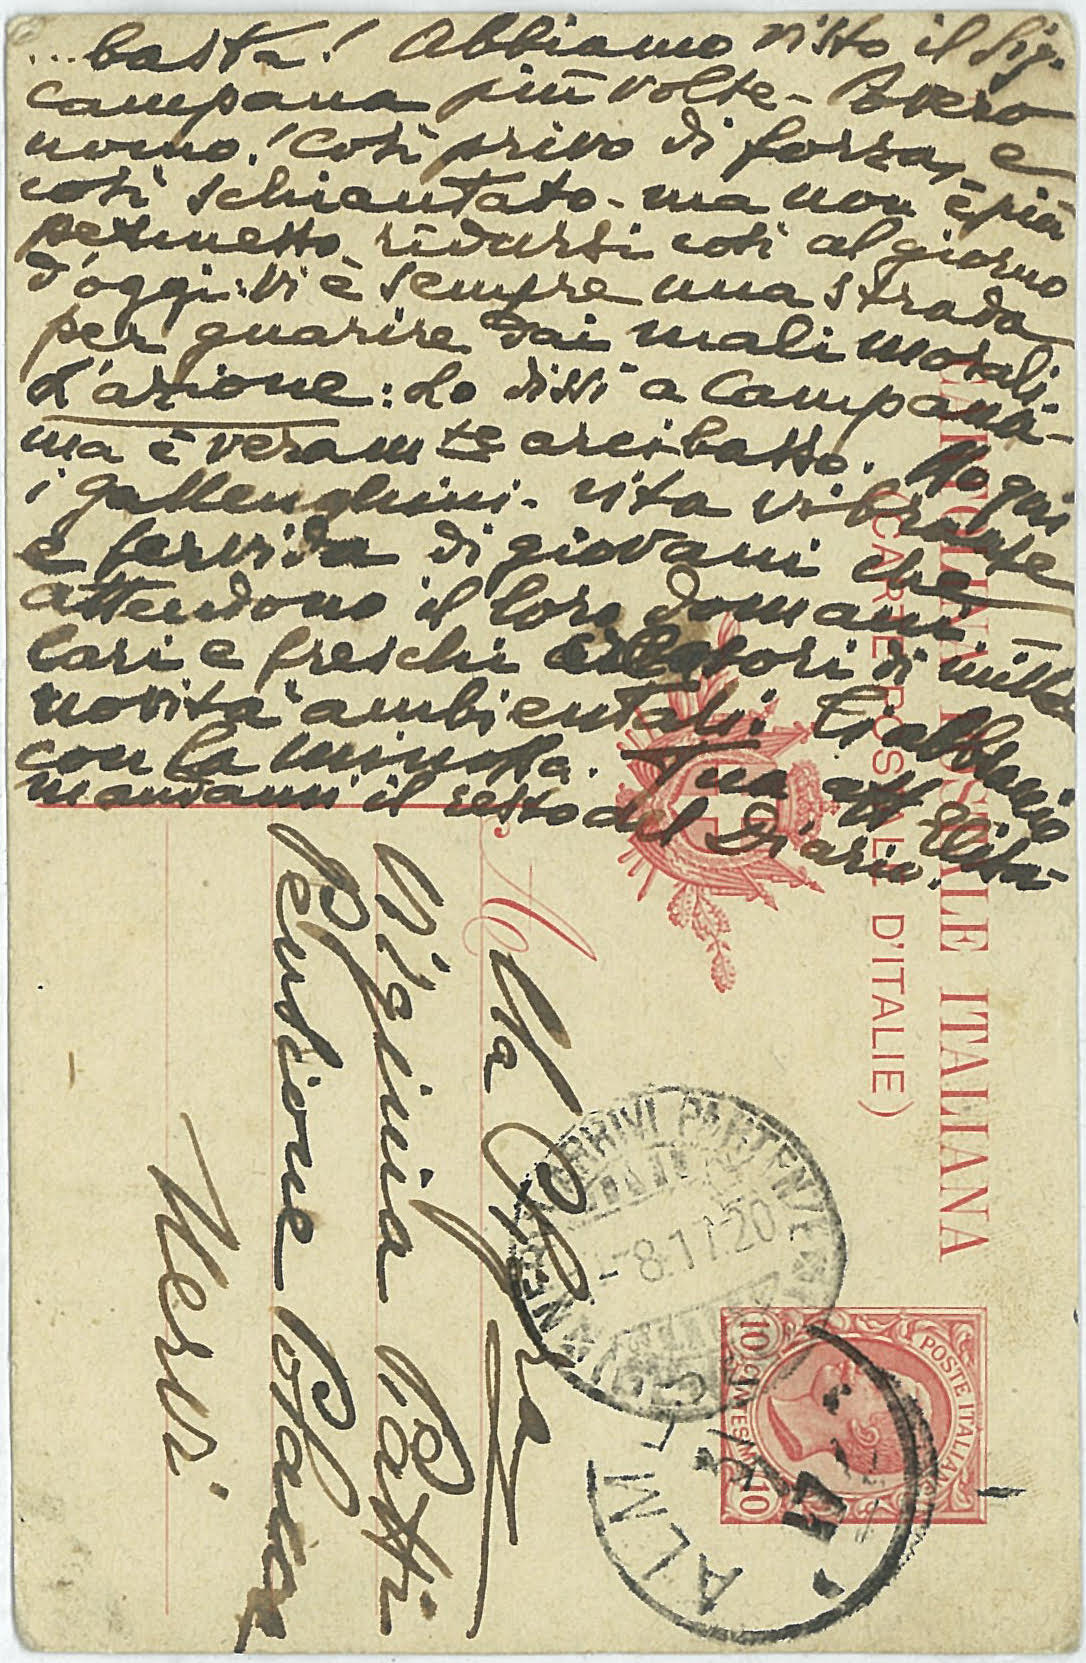 ...basta! Abbiamo visto il Sig.
Campana più volte - Povero
uomo! Così privo di forza, e
così schiantato - ma non è più
permesso ridursi così al giorno
d'oggi: Vi è sempre una strada
per guarire dai mali morali:
L'azione: Lo dissi a Campana -
ma è veramte arcibasso. Ho qui
i gallenghini - vita vibrante
e fervida di giovani che
attendono il loro domani
cari e freschi creatori di mille
novità ambientali. Ti abbraccio
con la minossa. Tua aff Elisa
mandami il resto del Diario.
CARTOLINA POSTALE ITALIANA
(CARTE POSTALE D'ITALIE)
A
lla Sigra
Virginia
Pensione
Nervi
ARRIVI PARTENZE
-8.17-20
POSTE ITALIANE
10 CENTESIMI 10